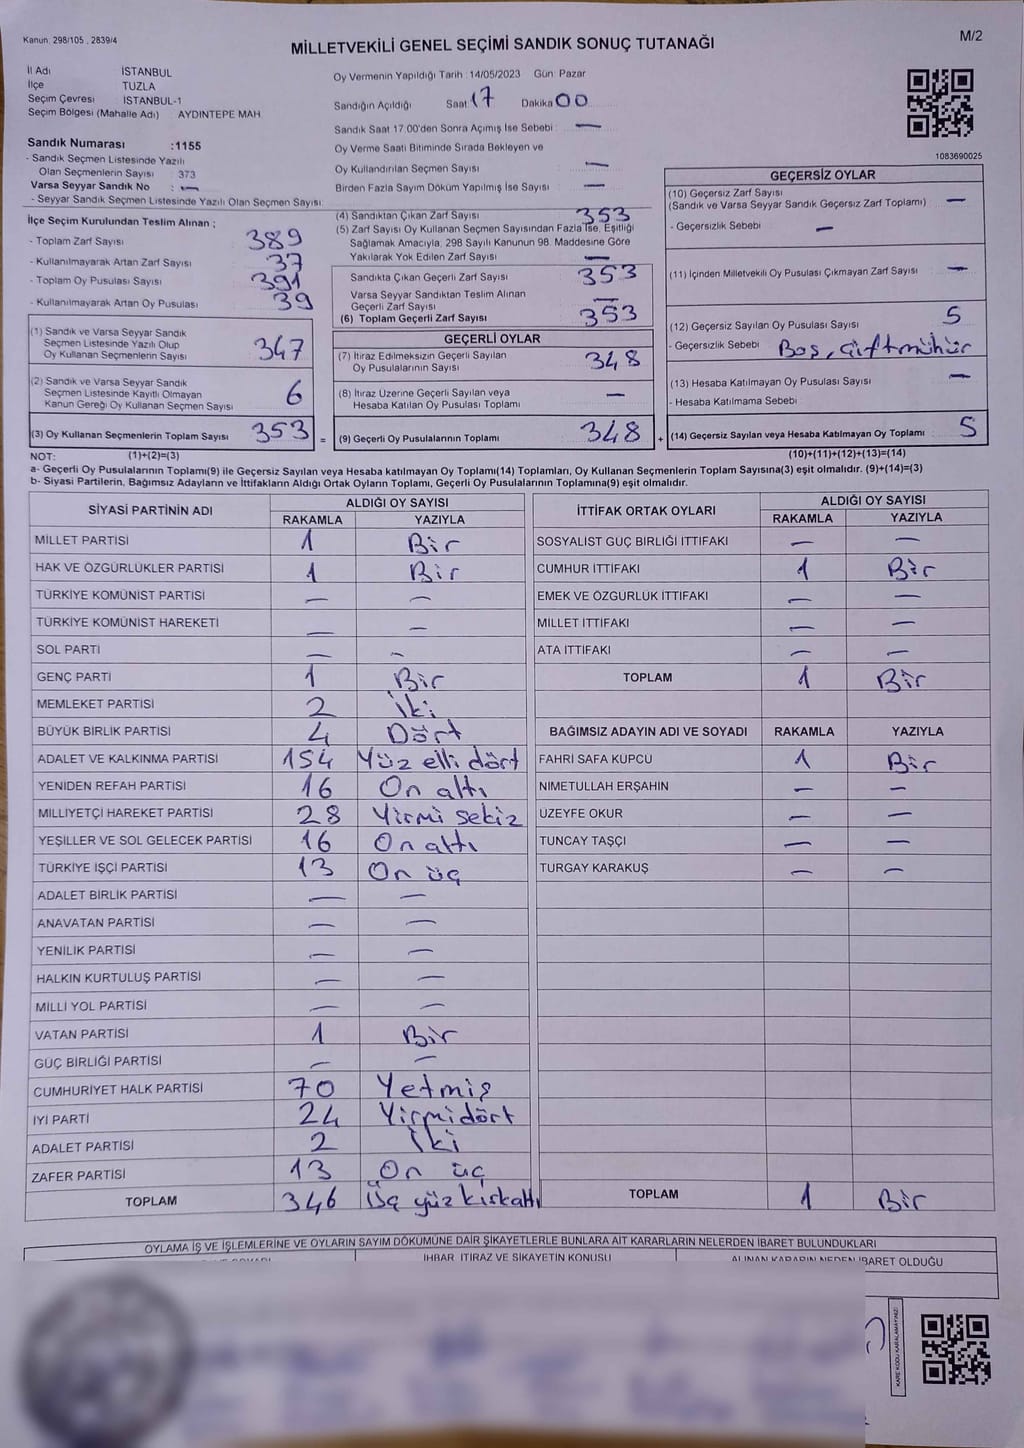 Kanun, 298/105 , 2839/4
MİLLETVEKİLİ GENEL SEÇİMİ SANDIK SONUÇ TUTANAĞI
M/2
İl Adı İSTANBUL
İlçe TUZLA
Seçim Çevresi İSTANBUL-1
Seçim Bölgesi (Mahalle Adı) AYDINTEPE MAH.
Oy Vermenin Yapıldığı Tarih : 14/05/2023 Gün: Pazar
Sandığın Açıldığı Saat 17 Dakika 00
Sandık Saat 17.00'den Sonra Açımış İse Sebebi : —
Oy Verme Saati Bitiminde Sırada Bekleyen ve
Oy Kullandırılan Seçmen Sayısı —
Birden Fazla Sayım Döküm Yapılmış İse Sayısı : —
1083690025
Sandık Numarası :1155
- Sandık Seçmen Listesinde Yazılı
Olan Seçmenlerin Sayısı : 373
Varsa Seyyar Sandık No : —
- Seyyar Sandık Seçmen Listesinde Yazılı Olan Seçmen Sayısı:
İlçe Seçim Kurulundan Teslim Alınan ;
- Toplam Zarf Sayısı 389
- Kullanılmayarak Artan Zarf Sayısı 37
- Toplam Oy Pusulası Sayısı 391
- Kullanılmayarak Artan Oy Pusulası 39
(1) Sandık ve Varsa Seyyar Sandık
Seçmen Listesinde Yazılı Olup
Oy Kullanan Seçmenlerin Sayısı 347
(2) Sandık ve Varsa Seyyar Sandık
Seçmen Listesinde Kayıtlı Olmayan
Kanun Gereği Oy Kullanan Seçmen Sayısı 6
(3) Oy Kullanan Seçmenlerin Toplam Sayısı 353 =
(4) Sandıktan Çıkan Zarf Sayısı 353
(5) Zarf Sayısı Oy Kullanan Seçmen Sayısından Fazla İse, Eşitliği
Sağlamak Amacıyla, 298 Sayılı Kanunun 98. Maddesine Göre
Yakılarak Yok Edilen Zarf Sayısı —
Sandıkta Çıkan Geçerli Zarf Sayısı 353
Varsa Seyyar Sandıktan Teslim Alınan
Geçerli Zarf Sayısı —
(6) Toplam Geçerli Zarf Sayısı 353
GEÇERLİ OYLAR
(7) İtiraz Edilmeksizin Geçerli Sayılan
Oy Pusulalarının Sayısı 348
(8) İtiraz Üzerine Geçerli Sayılan veya
Hesaba Katılan Oy Pusulası Toplamı —
(9) Geçerli Oy Pusulalarının Toplamı 348 +
GEÇERSİZ OYLAR
(10) Geçersiz Zarf Sayısı
(Sandık ve Varsa Seyyar Sandık Geçersiz Zarf Toplamı) —
- Geçersizlik Sebebi —
(11) İçinden Milletvekili Oy Pusulası Çıkmayan Zarf Sayısı —
(12) Geçersiz Sayılan Oy Pusulası Sayısı 5
- Geçersizlik Sebebi Boş, çift mühür
(13) Hesaba Katılmayan Oy Pusulası Sayısı —
- Hesaba Katılmama Sebebi
(14) Geçersiz Sayılan veya Hesaba Katılmayan Oy Toplamı 5
NOT: (1)+(2)=(3) (10)+(11)+(12)+(13)=(14)
a- Geçerli Oy Pusulalarının Toplamı(9) ile Geçersiz Sayılan veya Hesaba katılmayan Oy Toplamı(14) Toplamları, Oy Kullanan Seçmenlerin Toplam Sayısına(3) eşit olmalıdır. (9)+(14)=(3)
b- Siyasi Partilerin, Bağımsız Adayların ve İttifakların Aldığı Ortak Oyların Toplamı, Geçerli Oy Pusulalarının Toplamına(9) eşit olmalıdır.
SİYASİ PARTİNİN ADI ALDIĞI OY SAYISI
RAKAMLA YAZIYLA
MİLLET PARTİSİ 1 Bir
HAK VE ÖZGÜRLÜKLER PARTİSİ 1 Bir
TÜRKİYE KOMÜNİST PARTİSİ — —
TÜRKİYE KOMÜNİST HAREKETİ — —
SOL PARTİ — —
GENÇ PARTİ 1 Bir
MEMLEKET PARTİSİ 2 İki
BÜYÜK BİRLİK PARTİSİ 4 Dört
ADALET VE KALKINMA PARTİSİ 154 Yüz elli dört
YENİDEN REFAH PARTİSİ 16 On altı
MİLLİYETÇİ HAREKET PARTİSİ 28 Yirmi sekiz
YEŞİLLER VE SOL GELECEK PARTİSİ 16 On altı
TÜRKİYE İŞÇİ PARTİSİ 13 On üç
ADALET BİRLİK PARTİSİ — —
ANAVATAN PARTİSİ — —
YENİLİK PARTİSİ — —
HALKIN KURTULUŞ PARTİSİ — —
MİLLİ YOL PARTİSİ — —
VATAN PARTİSİ 1 Bir
GÜÇ BİRLİĞİ PARTİSİ — —
CUMHURİYET HALK PARTİSİ 70 Yetmiş
İYİ PARTİ 24 Yirmidört
ADALET PARTİSİ 2 İki
ZAFER PARTİSİ 13 On üç
TOPLAM 346 Üç yüz kırkaltı
İTTİFAK ORTAK OYLARI ALDIĞI OY SAYISI
RAKAMLA YAZIYLA
SOSYALİST GÜÇ BİRLİĞİ İTTİFAKI — —
CUMHUR İTTİFAKI 1 Bir
EMEK VE ÖZGÜRLÜK İTTİFAKI — —
MİLLET İTTİFAKI — —
ATA İTTİFAKI — —
TOPLAM 1 Bir
BAĞIMSIZ ADAYIN ADI VE SOYADI RAKAMLA YAZIYLA
FAHRİ SAFA KÜPCÜ 1 Bir
NİMETULLAH ERŞAHİN — —
ÜZEYFE OKUR — —
TUNCAY TAŞÇI — —
TURGAY KARAKUŞ — —
TOPLAM 1 Bir
OYLAMA İŞ VE İŞLEMLERİNE VE OYLARIN SAYIM DÖKÜMÜNE DAİR ŞİKAYETLERLE BUNLARA AİT KARARLARIN NELERDEN İBARET BULUNDUKLARI
İHBAR, İTİRAZ VE ŞİKAYETİN KONUSU ALINAN KARARIN NEDEN İBARET OLDUĞU
KARE KODU KARALAMAYINIZ!